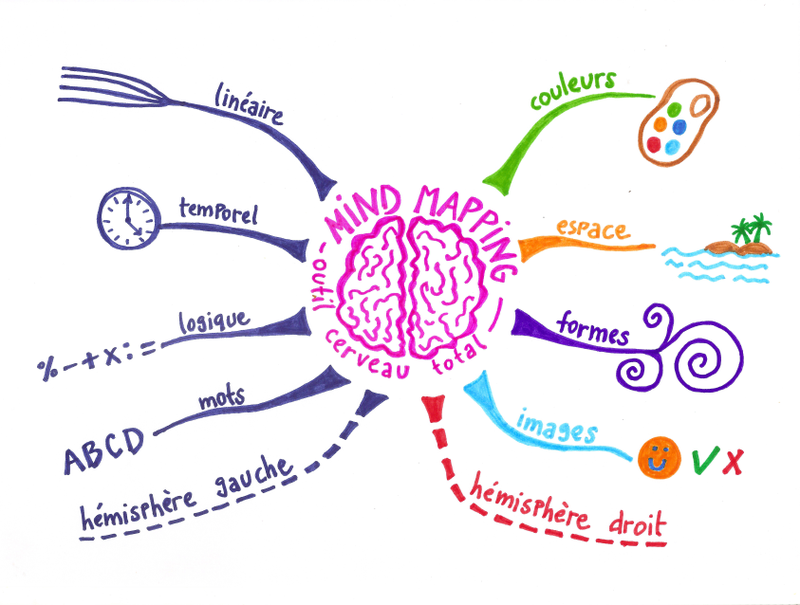 MIND MAPPING
- outil cerveau total -
linéaire
temporel
logique
% - + x : =
mots
ABCD
hémisphère gauche
couleurs
espace
formes
images
V X
hémisphère droit